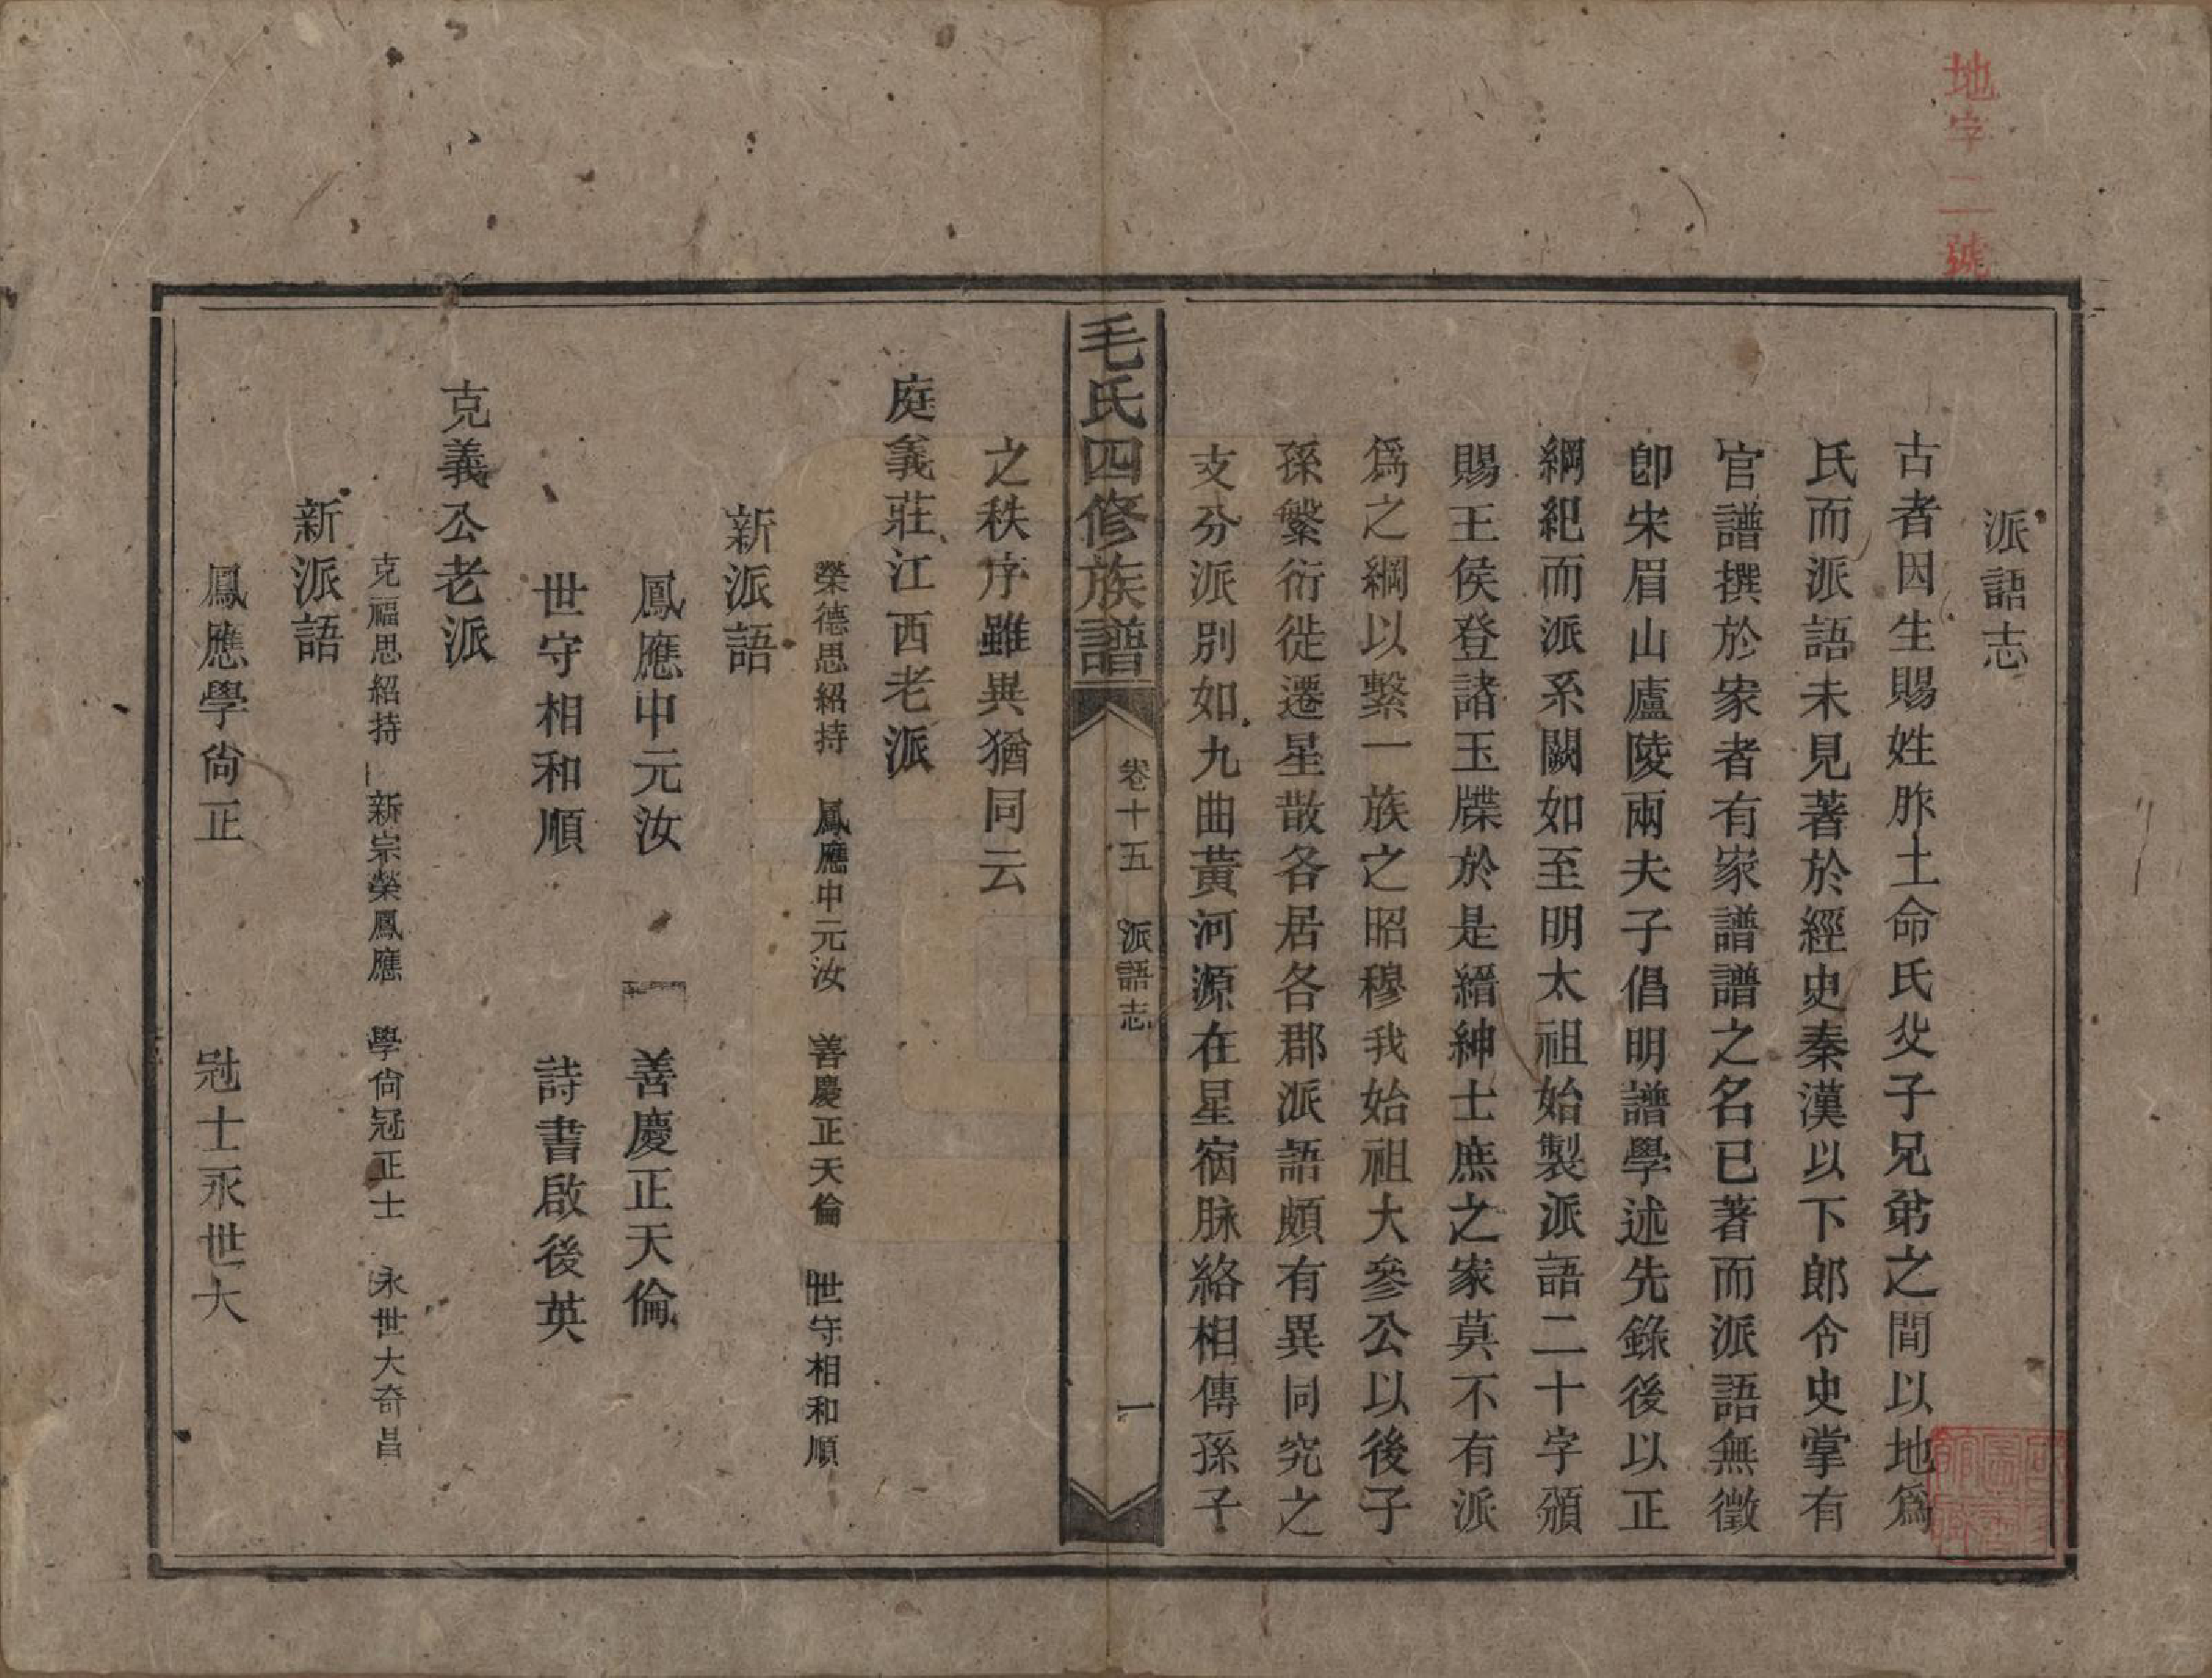 地字二號
派語志
古者因生賜姓胙土命氏父子兄弟之間以地爲
氏而派語未見著於經史秦漢以下郎令史掌有
官譜撰於家者有家譜譜之名已著而派語無徵
卽宋眉山廬陵兩夫子倡明譜學述先錄後以正
綱紀而派系闕如至明太祖始製派語二十字頒
賜王侯登諸玉牒於是縉紳士庶之家莫不有派
爲之綱以繫一族之昭穆我始祖大參公以後子
孫繁衍徙遷星散各居各郡派語頗有異同究之
支分派別如九曲黃河源在星宿脉絡相傳孫子
毛氏四修族譜
卷十五 派語志
一
之秩序雖異猶同云
庭義莊江西老派
榮德思紹持 鳳應中元汝 善慶正天倫 世守相和順
新派語
鳳應中元汝 善慶正天倫
世守相和順 詩書啟後英
克義公老派
克福思紹持 新宗榮鳳應 學尙冠正士 永世大奇昌
新派語
鳳應學尙正 冠士永世大